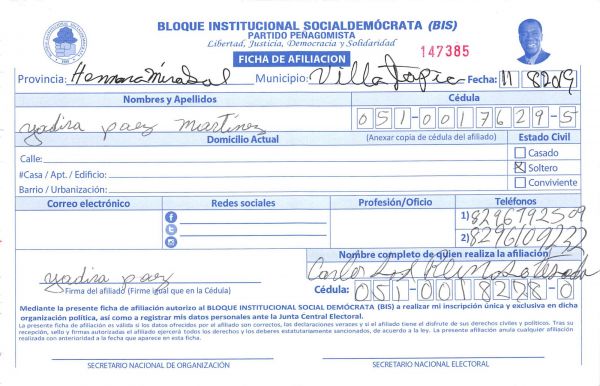 BLOQUE INSTITUCIONAL SOCIALDEMÓCRATA (BIS)
PARTIDO PEÑAGOMISTA
Libertad, Justicia, Democracia y Solidaridad
FICHA DE AFILIACION
147385
Provincia: Hermana Mirabal Municipio: Villa Tapia Fecha: 11 8 2019
Nombres y Apellidos Cédula
yadira paez Martinez 051-0017629-5
Domicilio Actual (Anexar copia de cédula del afiliado) Estado Civil
Calle: Casado
#Casa / Apt. / Edificio: Soltero
Barrio / Urbanización: Conviviente
Correo electrónico Redes sociales Profesión/Oficio Teléfonos
1) 8296792509
2) 8296109232
Nombre completo de quien realiza la afiliación
yadira paez Carlos
Firma del afiliado (Firme igual que en la Cédula) Cédula: 051-0018288-0
Mediante la presente ficha de afiliación autorizo al BLOQUE INSTITUCIONAL SOCIAL DEMÓCRATA (BIS) a realizar mi inscripción única y exclusiva en dicha
organización política, así como a registrar mis datos personales ante la Junta Central Electoral.
La presente ficha de afiliación es válida si los datos ofrecidos por el afiliado son correctos, las declaraciones veraces y si el afiliado tiene el disfrute de sus derechos civiles y políticos. Tras su
recepción, sello y firmas autorizadas el afiliado ejercerá todos los derechos y los deberes estatutariamente sancionados, de acuerdo a la ley. La presente afiliación anula cualquier afiliación
realizada con anterioridad a la fecha que aparece en esta ficha.
SECRETARIO NACIONAL DE ORGANIZACIÓN SECRETARIO NACIONAL ELECTORAL